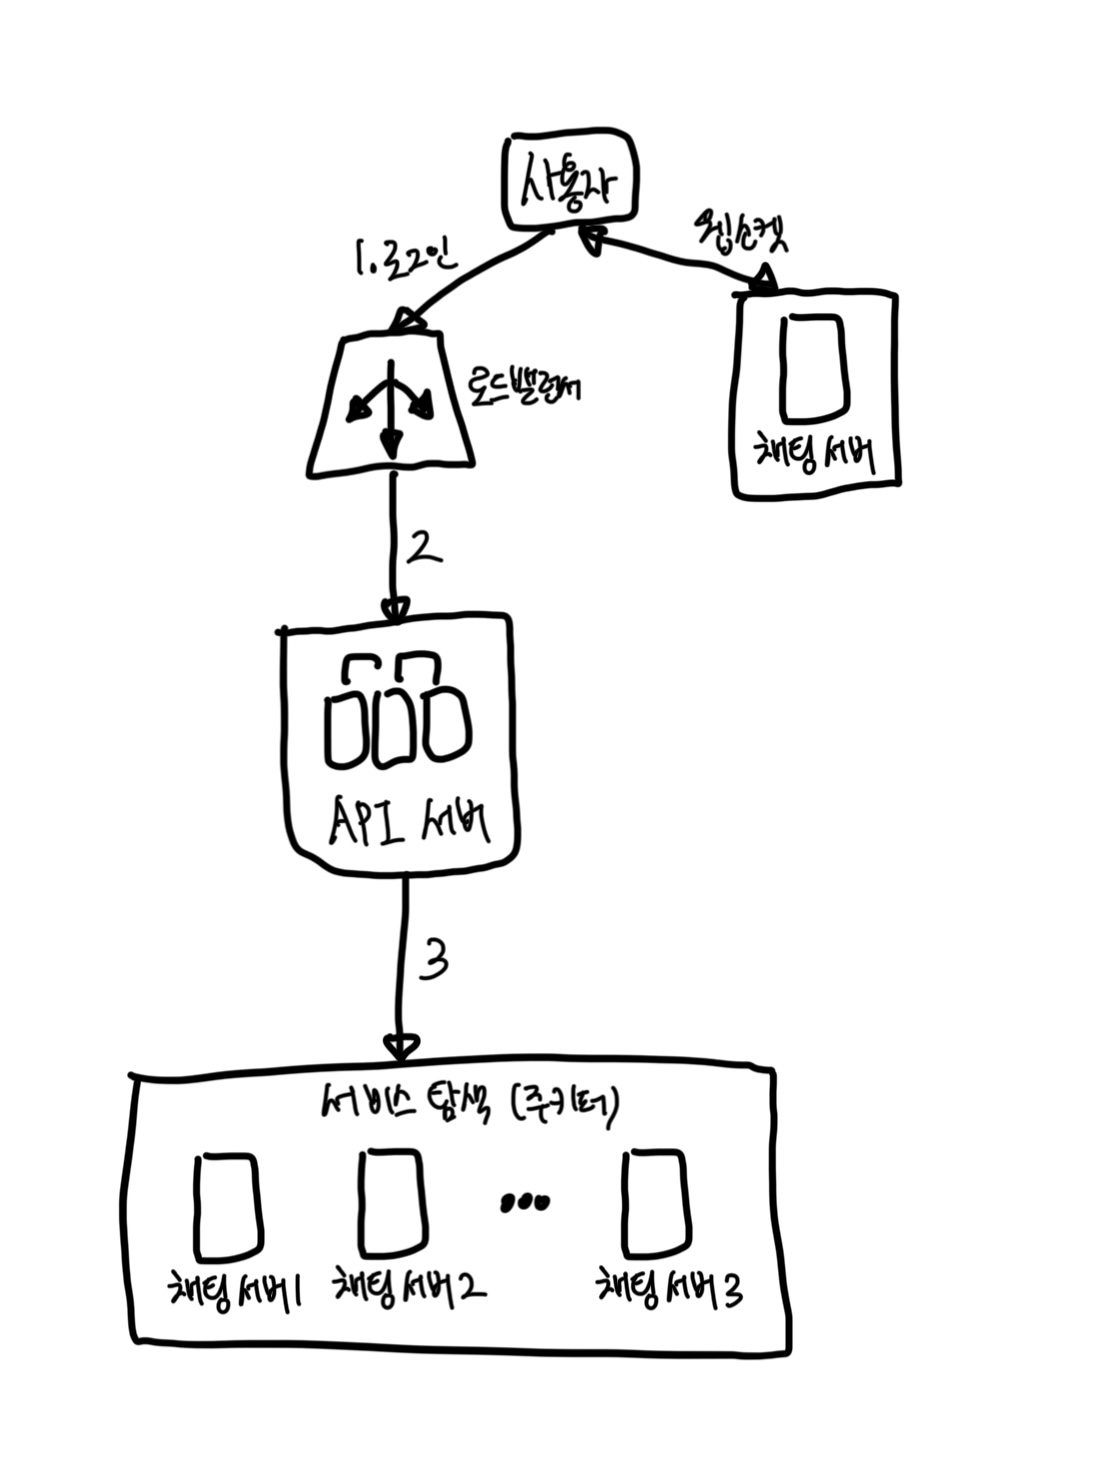 사용자
웹소켓
1. 로그인
로드밸런서
채팅 서버
2
API 서버
3
서비스 탐색 (주키퍼)
채팅 서버 1
채팅 서버 2
채팅 서버 3